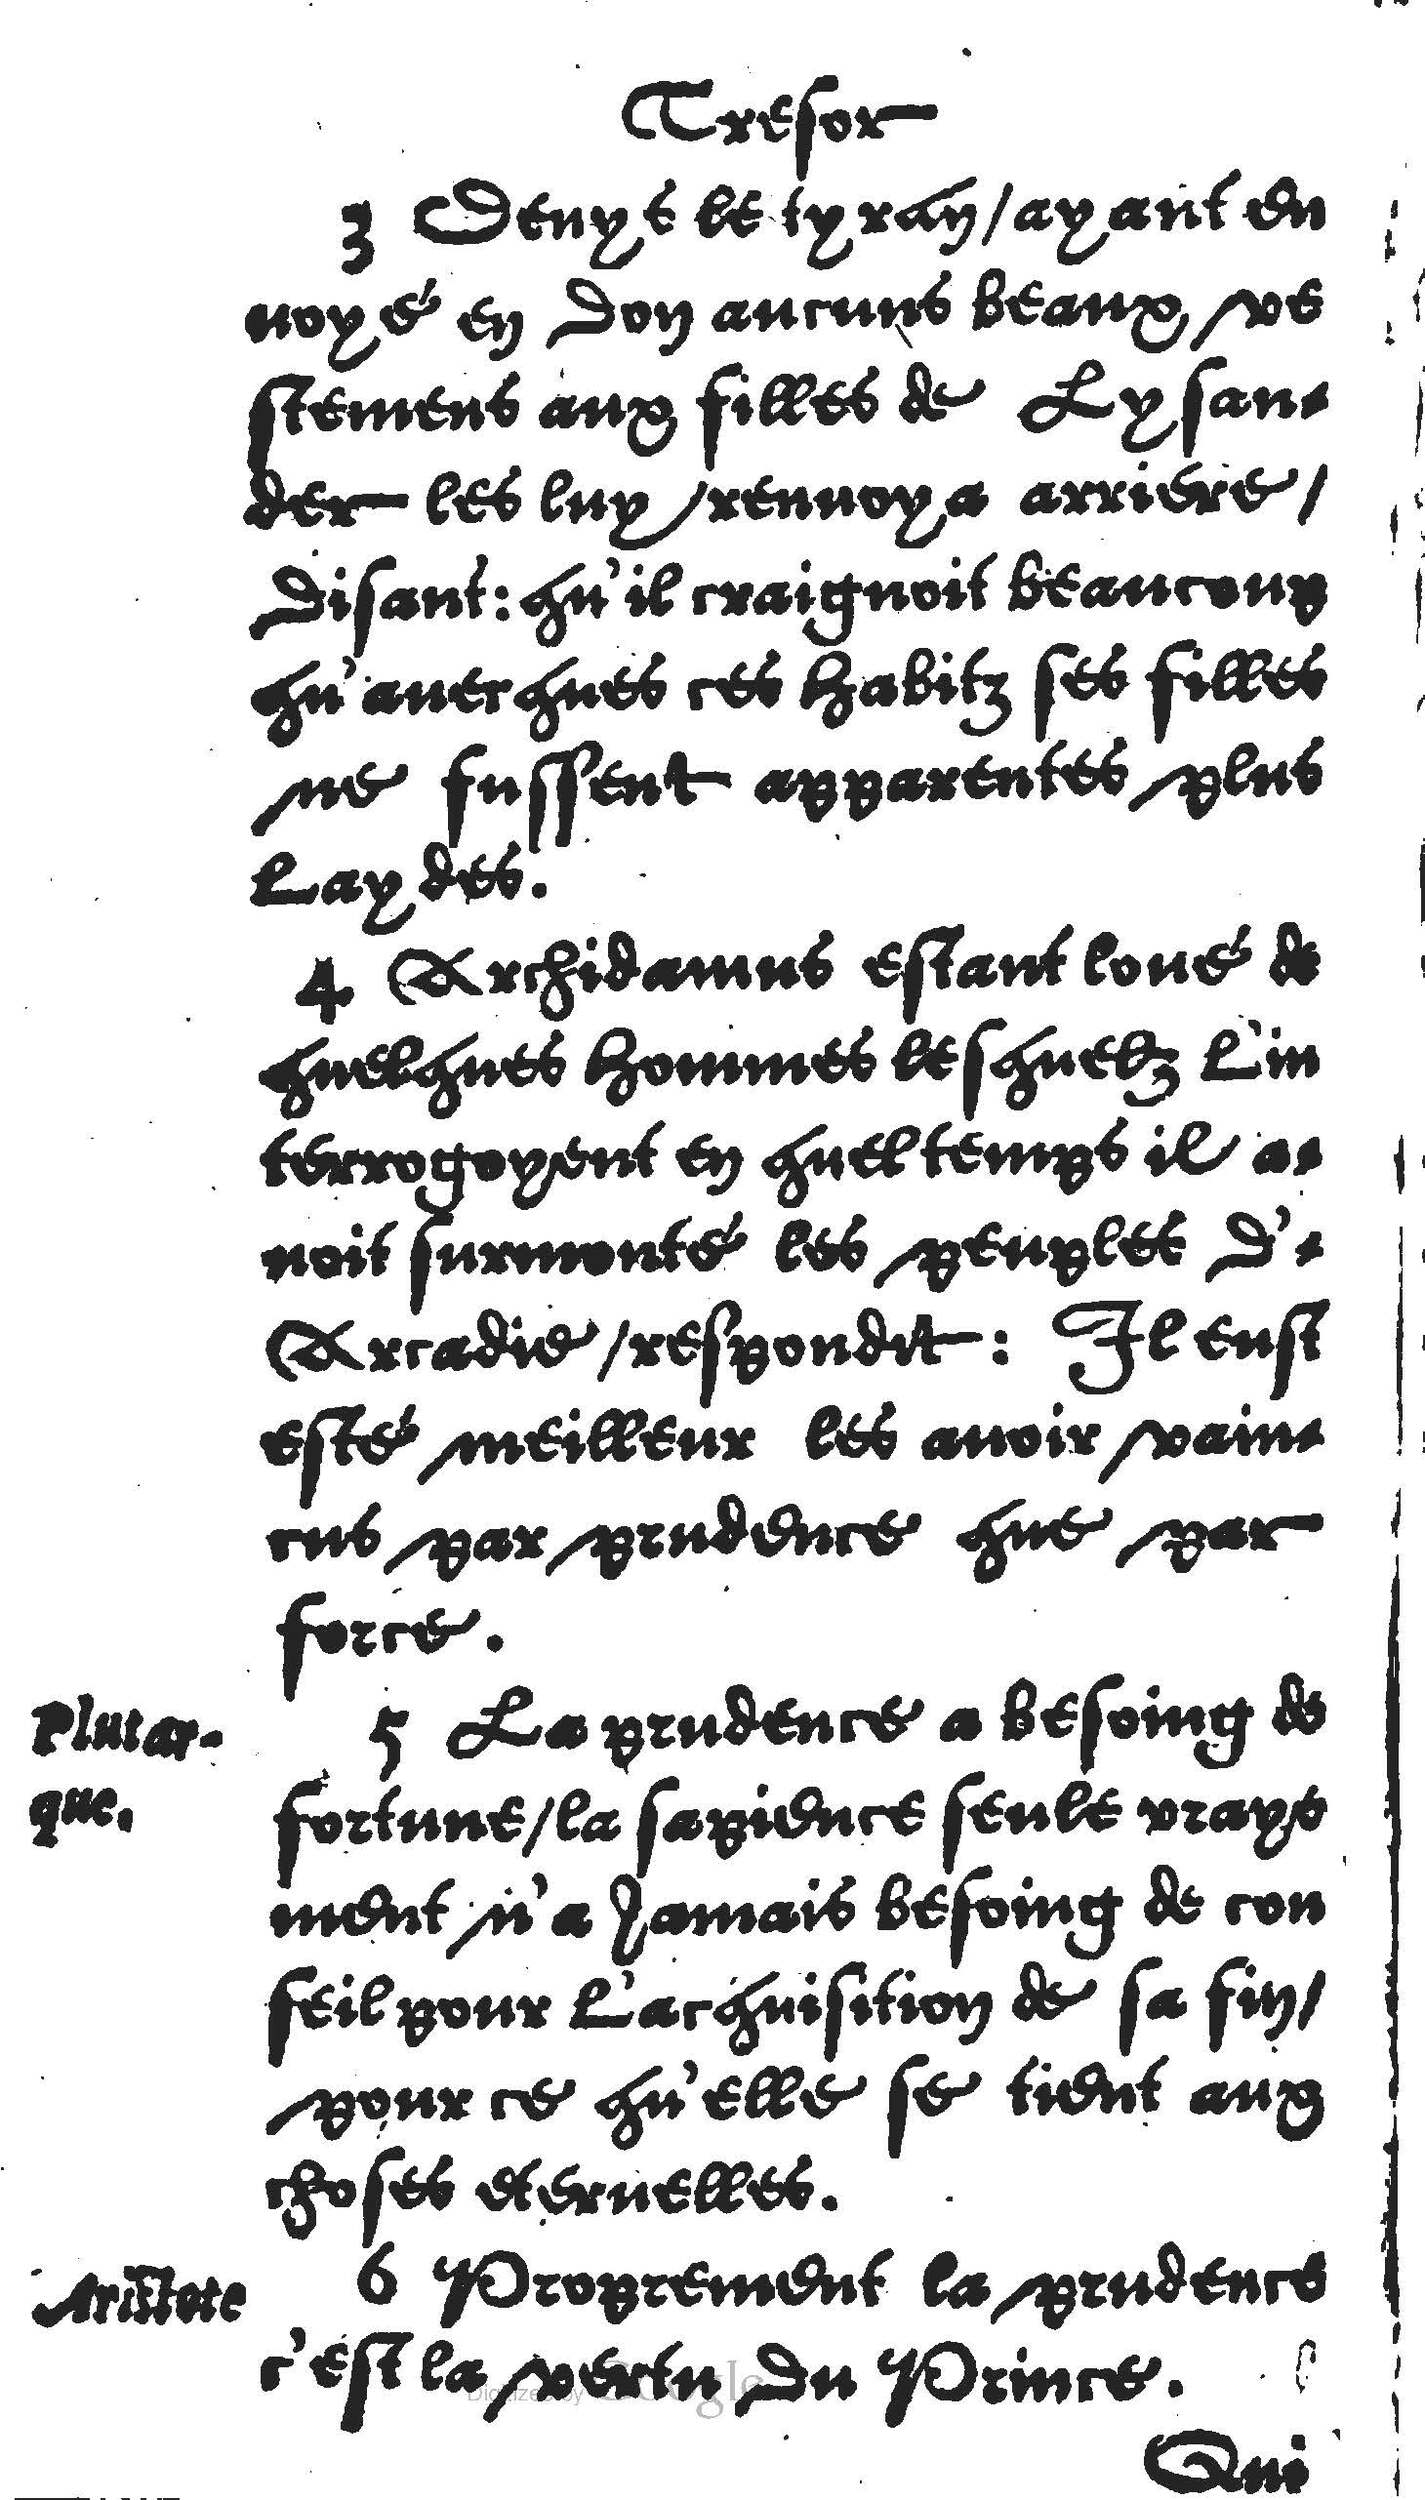 Tresor
3 Denys le tyran/ayant en
uoyé en don aucuns beaux ve
stemens aux filles de Lysan-
der les luy renuoya arriere/
disant: qu'il craignoit beaucoup
qu'auecques ces habitz ses filles
ne fussent apparentes plus
laydes.
4 Archidamus estant loué de
quelques hommes lesquelz l'in
terrogoyent en quel temps il a-
uoit surmonté les peuples d'-
Arcadie/respondit: Il eust
esté meilleur les auoir vain-
cus par prudence que par
force.
Plutar-
que.
5 La prudence a besoing de
fortune/la sapience seule vraye
ment n'a jamais besoing de con
seil pour l'acquisition de sa fin/
pource qu'elle se tient aux
choses eternelles.
Aristote
6 Proprement la prudence
c'est la vertu du Prince.
Digitized by Google
Qui